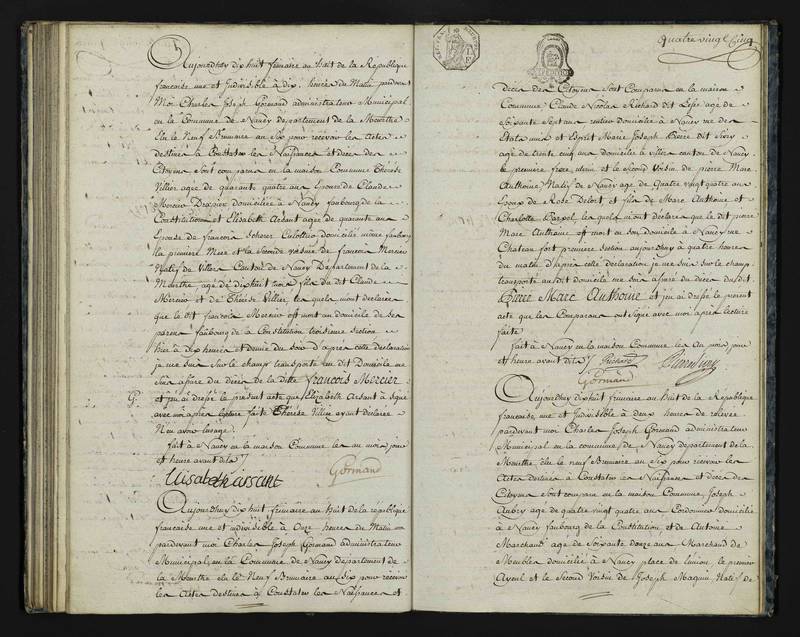 Aujourdhuy dix huit frimaire an huit de la République
francaise une et Indivisible à dix heures du Matin pardevant
Moi Charles Joseph Gormand administrateur Municipal
en la Commune de Nancy departement de la Meurthe
Elu le Neuf Brumaire an Six pour recevoir les Actes
destinés à Constater les Naissances et deces des
Citoyens sont comparus en la maison Commune Thérèse
Villier agée de quarante quatre ans Epouse de Claude
Mercier Drapier domiciliée à Nancy faubourg de la
Constitution et Elisabeth Arsant agée de quarante ans
Epouse de francois Scherer Culottier domicilié même faubourg
la premiere Mere et la Seconde voisine de francois Mercier
Natif de Villers Canton de Nancy Département de la
Meurthe agé de dix huit mois fils du dit Claude
Mercier et de Thérèse Villier, les quels mont declarées
que le dit francois Mercier est mort au domicile de ses
parens faubourg de la Constitution troisieme Section
hier à dix heures et demie du soir d'après cette declaration
je me suis Sur le champ transporté au dit Domicile me
suis assuré du deces de la ditte francois Mercier
et j'en ai dressé le present acte que Elizabeth Arsant à signé
avec moi après lecture faite Thérèse Villier ayant declarée
N'en avoir lusage.
fait à Nancy en la maison Commune les an mois jour
et heure avant dits
Elisabeth arsant Gormand
Aujourdhuy dix huit frimaire an huit de la république
francaise une et indivisible à Onze heures du Matin
pardevant moi Charles Joseph Gormand administrateur
Municipal en la Commune de Nancy departement de
la Meurthe élu le Neuf Brumaire an Six pour recevoir
les Actes destinés à Constater les Naissances et
Quatre vingt Cinq
deces des Citoyens Sont Comparus en la maison
Commune Claude Nicolas Richard dit agé de
Soixante Sept ans rentier domicilié à Nancy rue des
Etats unis et Esprit Marie Joseph Pierre dit Sivry
agé de trente cinq ans domicilié à villers canton de Nancy
le premier frere uterin et le Second Voisin de pierre Marc
Anthoine Natif de Nancy agé de Quatre vingt quatre ans
Epoux de Rose Delort et fils de Marc Anthoine et
Charlotte les quels mont declaré que le dit pierre
Marc Anthoine est mort en son domicile à Nancy rue
Chateau fort premiere section aujourdhuy à quatre heures
du matin d'après cette déclaration je me suis sur le champ
transporté au dit domicile me suis assuré du deces du dit
Pierre Marc Anthoine et j'en ai dressé le present
acte que les Comparans ont signé avec moi après lecture
faite
fait à Nancy en la maison Commune les An mois jour
et heure avant dits Richard Pierre Sivry
Gormand
Aujourdhuy dix huit frimaire an huit de la République
francaise une et Indivisible à deux heures de relevée
pardevant moi Charles Joseph Gormand administrateur
Municipal en la commune de Nancy departement de la
Meurthe élu le neuf Brumaire an Six pour recevoir les
Actes destinés à Constater les Naissances et deces des
Citoyens sont comparus en la maison Commune Joseph
Aubry agé de quatre vingt quatre ans Cordonnier domicilié
à Nancy faubourg de la Constitution et Antoine
Marchand agé de Soixante douze ans Marchand de
Meubles domicilié à Nancy place de lunion, le premier
Ayeul et le Second Voisin de Joseph Maquin Natif de